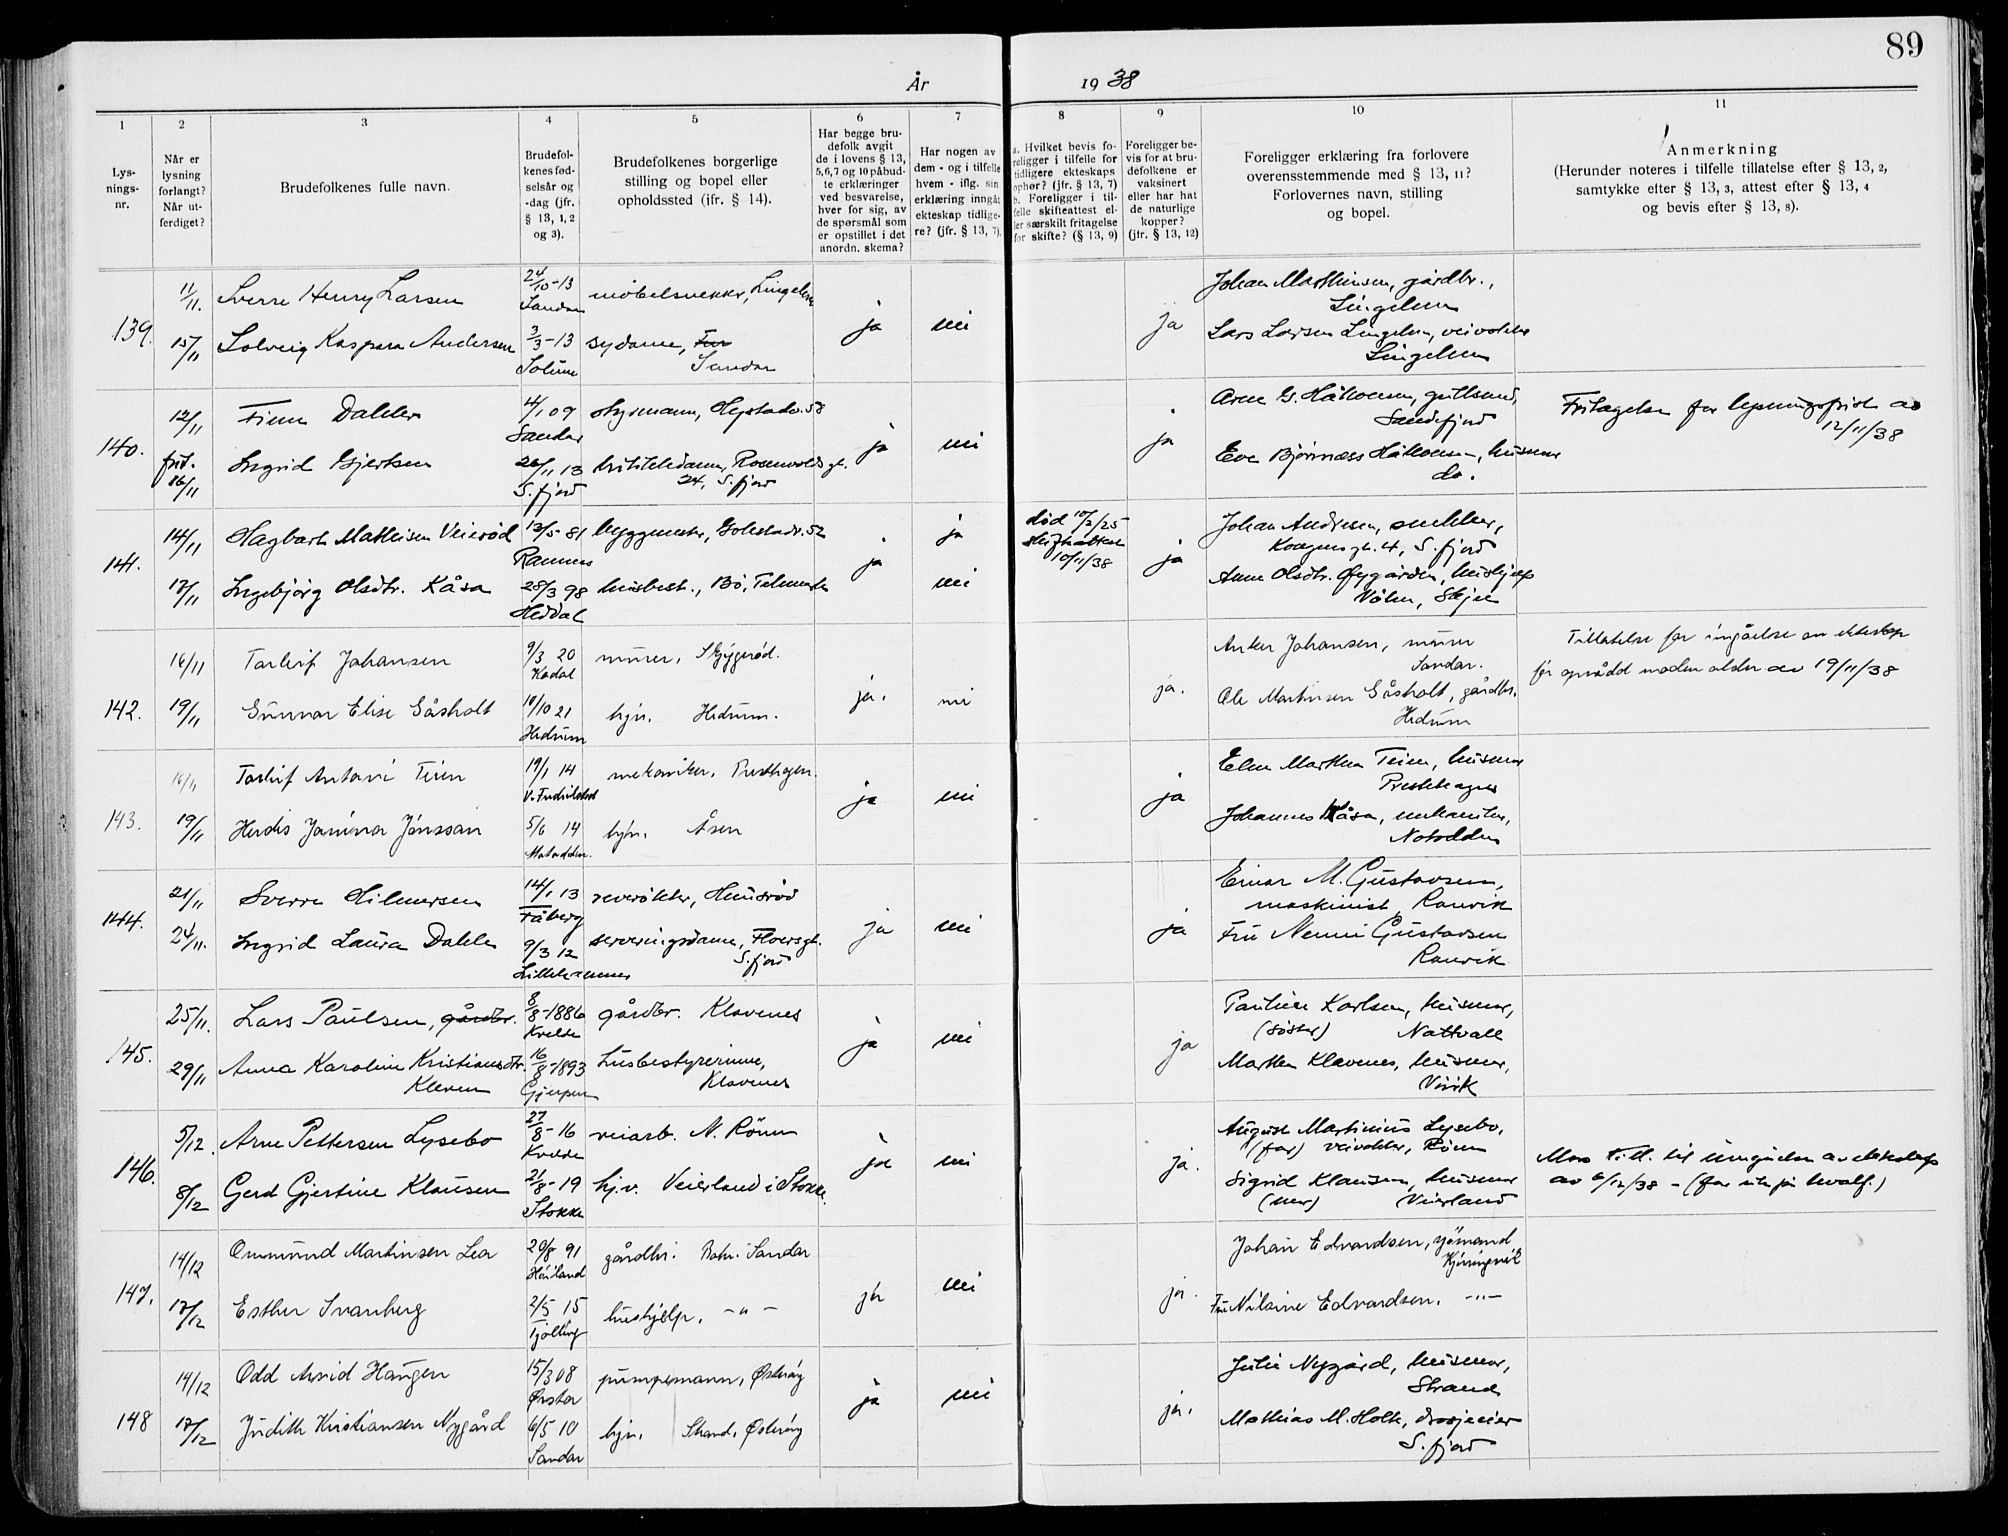 89
År 1938
1 2 3 4 5 6 7 8 9 10 11
Lys-
nings-
nr.
Når er
lysning
forlangt?
Når ut-
ferdiget?
Brudefolkenes fulle navn.
Brudefol-
kenes fød-
selsår og
-dag (jfr.
§ 13, 1, 2
og 3).
Brudefolkenes borgerlige
stilling og bopel eller
opholdssted (jfr. § 14).
Har begge bru-
defolk avgit
de i lovens § 13,
5,6,7 og 10 påbud-
te erklæringer
ved besvarelse,
hver for sig, av
de spørsmål som
er opstillet i det
anordn. skema?
Har nogen av
dem - og i tilfelle
hvem - iflg. sin
erklæring inngåt
ekteskap tidlige-
re? (jfr. § 13, 7).
a. Hvilket bevis fo-
religger i tilfelle for
tidligere ekteskaps
ophør? (jfr. § 13, 7)
b. Foreligger i til-
felle skifteattest el-
ler særskilt fritagelse
for skifte? (§ 13, 9)
Foreligger be-
vis for at bru-
defolkene er
vaksinert
eller har hat
de naturlige
kopper?
(jfr. § 13, 12)
Foreligger erklæring fra forlovere
overensstemmende med § 13, 11?
Forlovernes navn, stilling
og bopel.
Anmerkning
(Herunder noteres i tilfelle tillatelse efter § 13, 2,
samtykke efter § 13, 3, attest efter § 13, 4
og bevis efter § 13, 8).
139.
11/11.
15/11
Sverre Henry Larsen
Solveig Kaspera Andersen
24/10-13
Sandar
3/3-13
Solum
møbelsnekker,
sydame,
Sandar
ja
nei
ja
Johan Marthinsen, gårdbr.,
Lingelem
Lars Larsen Lingelem, veivokter
Lingelem
140.
12/11
frit.
16/11
Finn Dahler
Ingrid Gjertsen
4/1 09
Sandar
26/11 13
S.fjord
styrmann, Hystadv. 58
butikkdame, Rosenvolds gt.
24, S.fjord
ja
nei
ja
Arne G. Håkonsen, gullsmed,
Sandefjord
Eva Bjørnæss Håkonsen, husmor
do.
Fritagelse for lysningsfrist av
12/11/38
141.
14/11
17/11
Hagbart Mathisen Veierød
Ingebjörg Olsdtr. Kåsa
13/5 81
Ramnes
28/3 98
Heddal
byggmester,
husbest., Bö, Telemark
ja
ja
nei
död 10/2/25
skifteattest
10/11/38
ja
Johan Andresen, snekker,
Kongens gt. 4, S.fjord
Anne Olsdtr. Øygarden, hushjelp
142.
16/11
19/11
Torleif Johansen
Gunnar Elise Gåsholt
9/3 20
Kodal
10/10 21
Hedrum
murer,
hjv. Hedrum.
ja.
nei
ja.
Anker Johansen, murer
Sandar.
Ole Martinsen Gåsholt, gårdbr.
Hedrum
Tillatelse for inngåelse av ekteskap
før opnådd moden alder av 19/11/38
143.
16/11
19/11
Torleif Antoni Teien
Herdis Janina Jónsson
19/1 14
5/6 14
Notodden.
mekaniker, Presthagen.
hjv. Åsen
ja
nei
ja
Elen Marthea Teien, husmor
Presthagen
Johannes Kåsa, mekaniker,
Notodden
144.
21/11
24/11.
Sverre Hilmersen
Ingrid Laura Dahle
14/1 13
Fåberg
9/3 12
Lillehammer
reverøkter,
serveringsdame, Floersgt.
S.fjord
ja
nei
ja
Einar M. Gustavsen,
maskinist Ranvik
Fru Nenni Gustavsen
Ranvik
145.
25/11.
29/11
Lars Paulsen, gårdbr.
Anna Karoline Kristiansdtr.
Kleven
8/8-1886
Kvelde
16/8-1893
Gjerpen
gårdbr. Klavenes
husbestyrerinne,
Klavenes
ja
nei
ja
Pauline Karlsen, husmor,
(søster) Nattvall
Marthea Klavenes, husmor,
Virik
146.
5/12.
8/12
Arne Pettersen Lysebo
Gerd Gjertine Klausen
27/8-16
Kvelde
2/8-19
Stokke
veiarb. N. Röum
hj.v. Veierland i Stokke.
ja
nei
ja.
August Martinius Lysebo,
(far) veivokter, Röum
Sigrid Klausen, husmor
(mor) Veierland
av 6/12/38
147.
14/12
17/12
Ommund Martinsen Lea
Esther Svanberg
20/8 91
Höiland
2/5 15
Tjölling
gårdbr. Sandar
hushjelp, -"-
ja
nei
ja.
Johan Edvardsen, sjömand
Fru Nilsine Edvardsen. -"-
148
14/12
17/12
Odd Arvid Haugen
Judith Kristiansen Nygård
15/3 08
Ørsta
6/5 10
Sandar
pumpemann, Østerøy
hjv. Strand, Østerøy
ja
nei
ja.
Julie Nygård, husmor,
Strand
Mathias M. Holt, drosjeeier
S.fjord